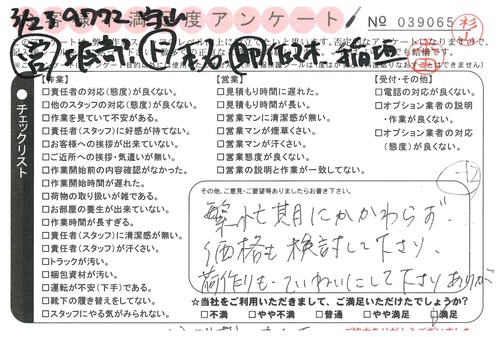 満 度アンケート
№ 039065
チェックリスト
【作業】
□責任者の対応(態度)が良くない。
□他のスタッフの対応(態度)が良くない。
□作業を見ていて不安がある。
□責任者(スタッフ)に好感が持てない。
□お客様への挨拶が出来ていない。
□ご近所への挨拶・気遣いが無い。
□作業開始前の内容確認がなかった。
□作業開始時間が遅れた。
□荷物の取り扱いが雑である。
□お部屋の養生が出来ていない。
□作業時間が長すぎる。
□責任者(スタッフ)に清潔感が無い。
□責任者(スタッフ)が汗くさい。
□トラックが汚い。
□梱包資材が汚い。
□運転が不安(下手)である。
□靴下の履き替えをしてない。
□スタッフにやる気がみられない。
【営業】
□見積もり時間に遅れた。
□見積もり時間が長い。
□営業マンに清潔感が無い。
□営業マンが煙草くさい。
□営業マンが汗くさい。
□営業態度が良くない。
□営業の説明と作業が一致してない。
【受付・その他】
□電話の対応が良くない。
□オプション業者の説明
・作業が良くない。
□オプション業者の対応
(態度)が良くない。
その他、ご意見・ご要望等ありましたらお書き下さい。
繁忙期にかかわらず、
価格も検討して下さり、
荷作りも、ていねいにして下さりありが
☆当社をご利用いただきまして、ご満足いただけたでしょうか?
□不満 □やや不満 □普通 □やや満足 □満足